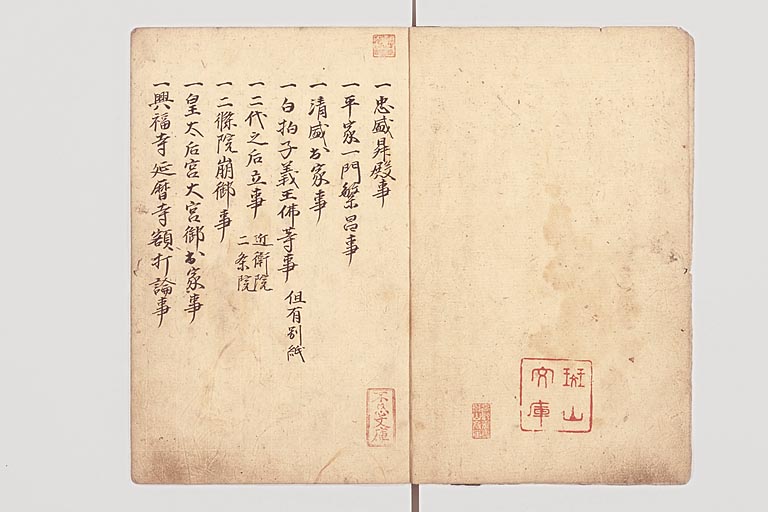 一忠盛昇殿事
一平家一門繁昌事
一清盛出家事
一白拍子義王佛等事 但有別紙
一二代之后立事 近衛院 二条院
一二條院崩御事
一皇太后宮大宮御出家事
一興福寺延暦寺額打論事
不忍文庫
斑山文庫